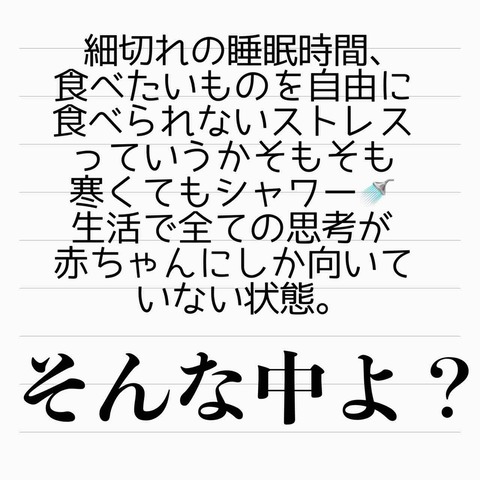 細切れの睡眠時間、
食べたいものを自由に
食べられないストレス
っていうかそもそも
寒くてもシャワー🚿
生活で全ての思考が
赤ちゃんにしか向いて
いない状態。
そんな中よ？